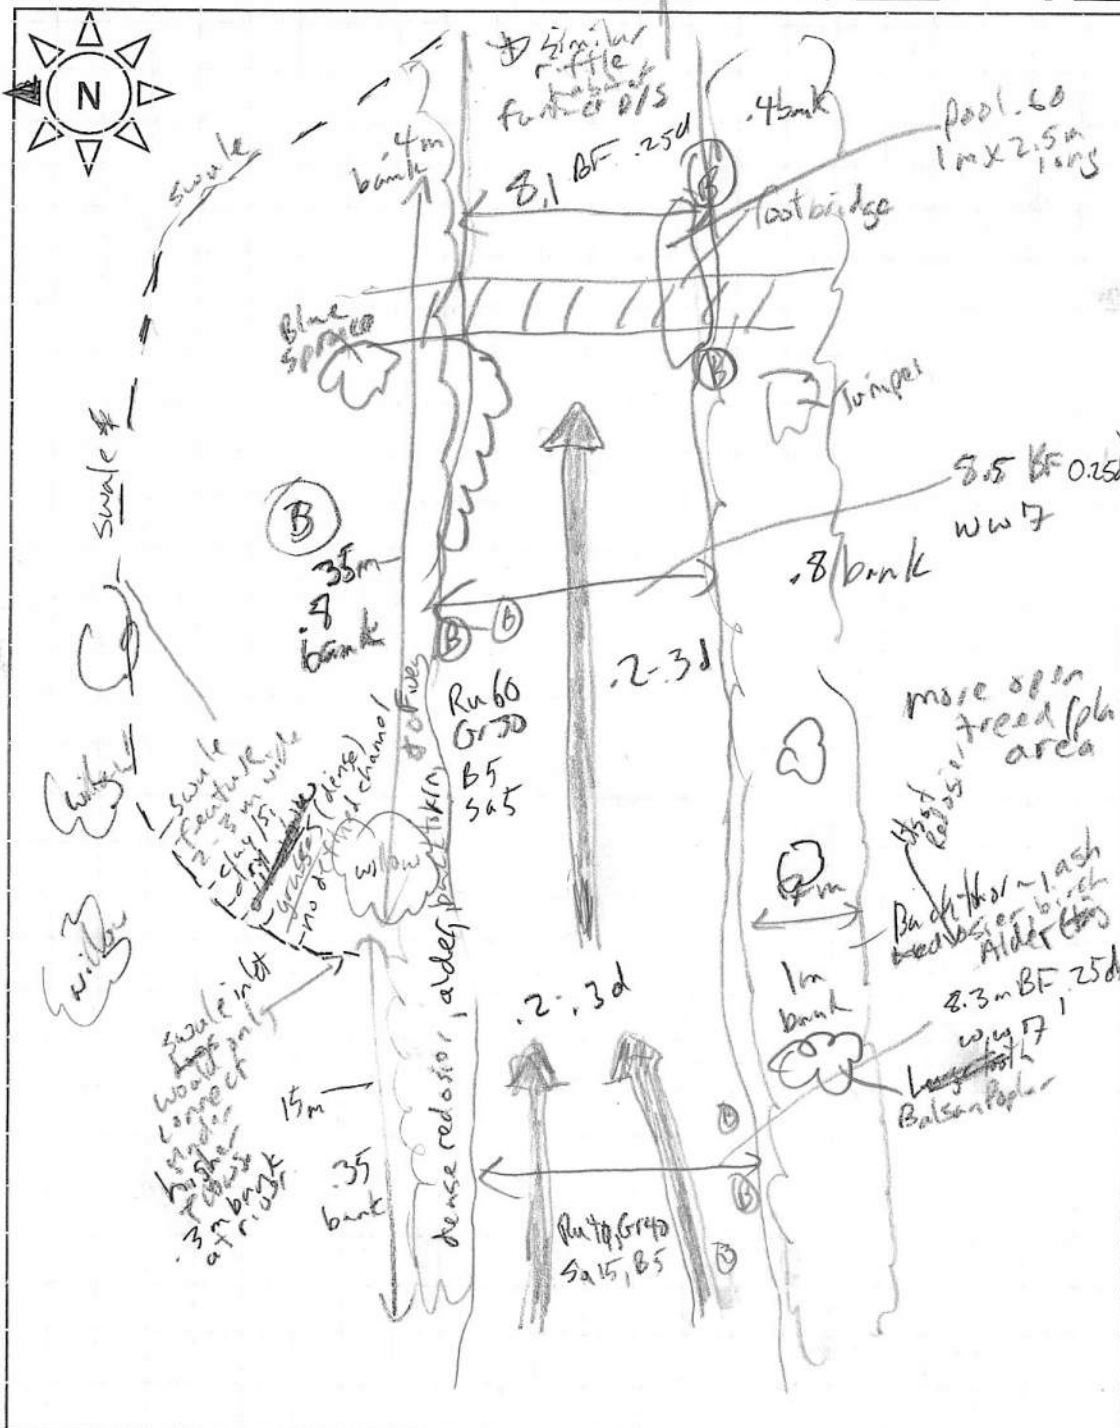 N
similar
riffle
habitat
further D/S
.4 bank
pool .60
1m x 2.5m
long
swale
.4m
bank
8.1 BF .25d
B
footbridge
Blue
spruce
B
Juniper
swale *
8.5 BF 0.25d
ww 7
B
35m
.8
bank
.8 bank
B
B
.2-.3d
Ru 60
Gr 30
B5
Sa5
more open
treed
area
swale
feature
2-3 m wide
- clay/si
grasses (dense)
- no defined channel
willow
willow
willow
dense redosior, alder, buckthorn,
1m
bank
Buckthorn, ash
birch
Alder
8.3m BF, .25d
ww 7
Balsam Poplar
swale inlet
would only
connect
under
higher
flows
.3m bank
at river
.2-.3d
15m
.35
bank
B
B
B
Ru 40, Gr 40
Sa 15, B5